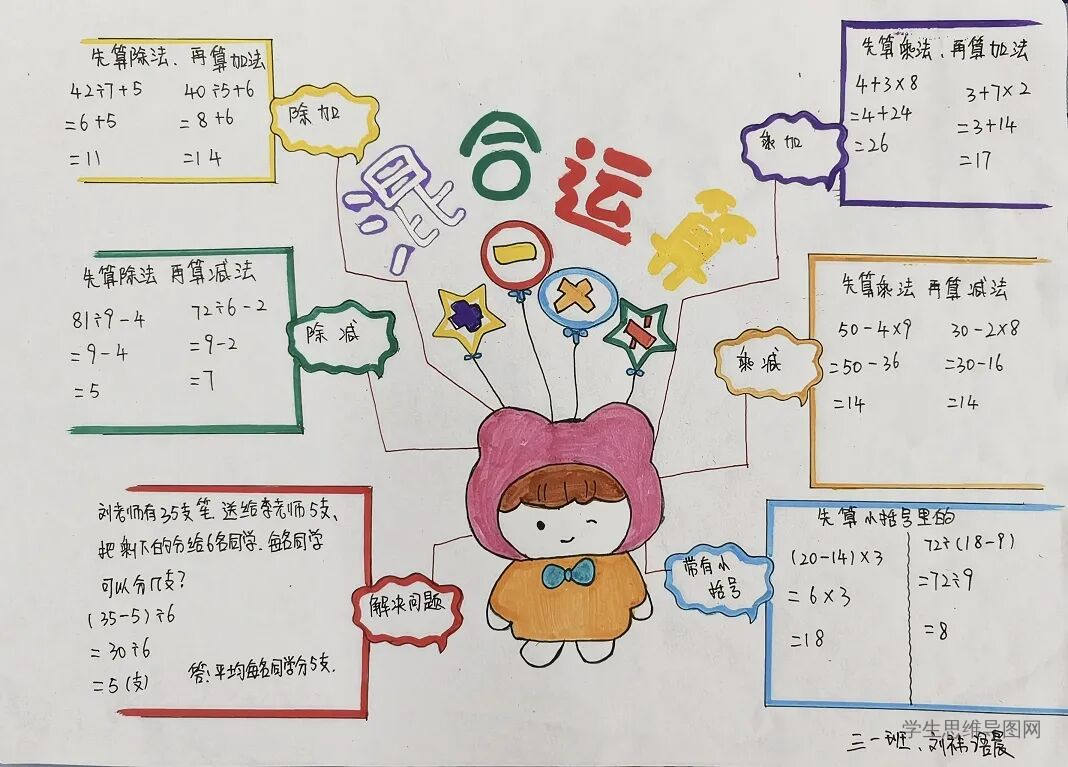 混合运算
除加
先算除法、再算加法
42÷7+5
=6+5
=11
40÷5+6
=8+6
=14
除减
先算除法 再算减法
81÷9-4
=9-4
=5
72÷6-2
=9-2
=7
解决问题
刘老师有35支笔,送给李老师5支、
把剩下的分给6名同学.每名同学
可以分几支?
(35-5)÷6
=30÷6
=5(支)
答:平均每名同学分5支.
乘加
先算乘法、再算加法
4+3×8
=4+24
=26
3+7×2
=3+14
=17
乘减
先算乘法 再算减法
50-4×9
=50-36
=14
30-2×8
=30-16
=14
带有小
括号
先算小括号里的
(20-14)×3
=6×3
=18
72÷(18-9)
=72÷9
=8
学生思维导图网
三一班、刘祎晨